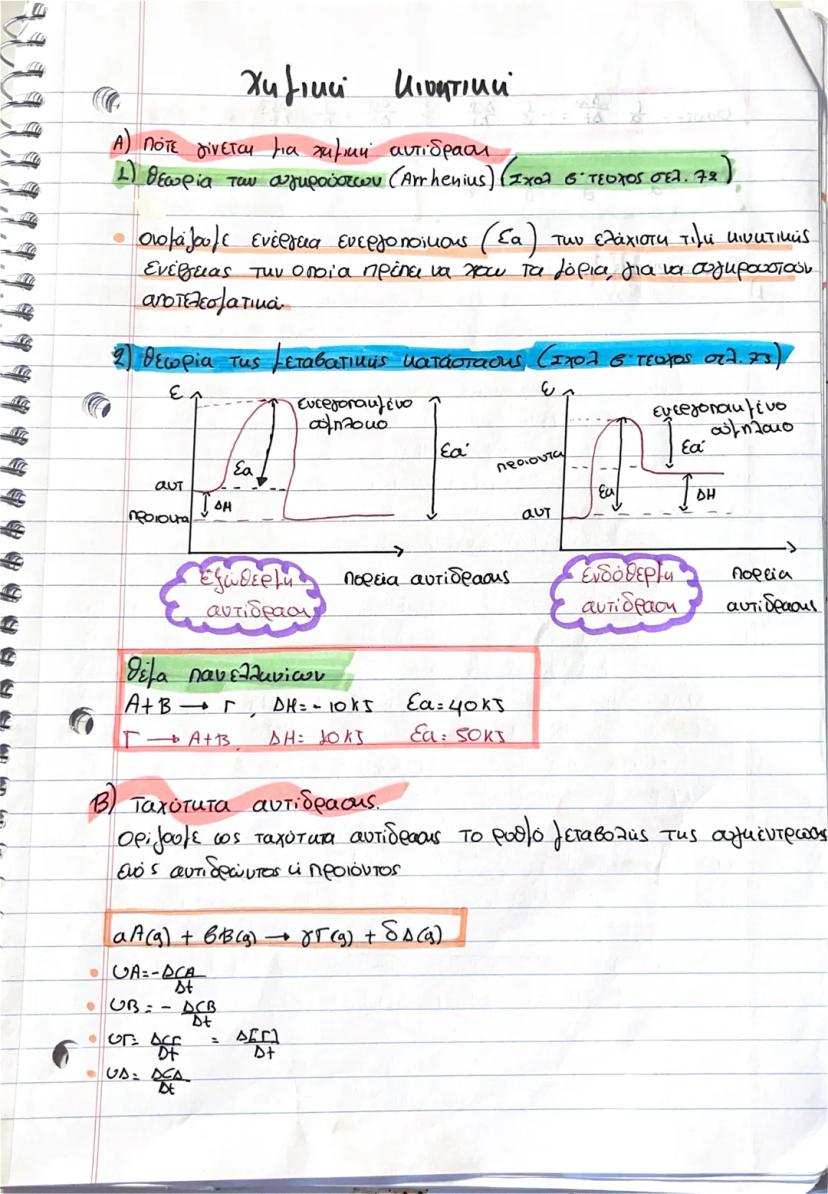 χημική κινητική
Α) Πότε γίνεται μια χημική αντίδραση
1) Θεωρία των συγκρούσεων (Arrhenius) (Σχολ β' τεύχος σελ. 72)
• Ονομάζουμε ενέργεια ενεργοποίησης (Εa) την ελάχιστη τιμή κινητικής
ενέργειας την οποία πρέπει να χουν τα μόρια, για να συγκρουστούν
αποτελεσματικά.
2) Θεωρία της μεταβατικής κατάστασης (Σχολ β' τεύχος σελ. 73)
ε
ενεργοποιημένο
σύμπλοκο
Εa
Εa'
αντ
ΔΗ
προιοντα
πορεία αντίδρασης
εξώθερμη
αντίδραση
ε
ενεργοποιημένο
σύμπλοκο
Εa'
προιοντα
Εa
ΔΗ
αντ
πορεία
αντίδρασης
ενδόθερμη
αντίδραση
Θέμα πανελληνίων
Α+Β → Γ, ΔΗ=-10kJ Εa=40kJ
Γ → Α+Β, ΔΗ= 10kJ Εa= 50kJ
Β) Ταχύτητα αντίδρασης.
Ορίζουμε ως ταχύτητα αντίδρασης το ρυθμό μεταβολής της συγκέντρωσης
ενός αντιδρώντος ή προιόντος
αΑ(g) + βΒ(g) → γΓ(g) + δΔ(g)
• υΑ=-ΔCA/Δt
• υΒ= - ΔCB/Δt
• υΓ= ΔCΓ/Δt = Δ[Γ]/Δt
• υΔ= ΔCΔ/Δt